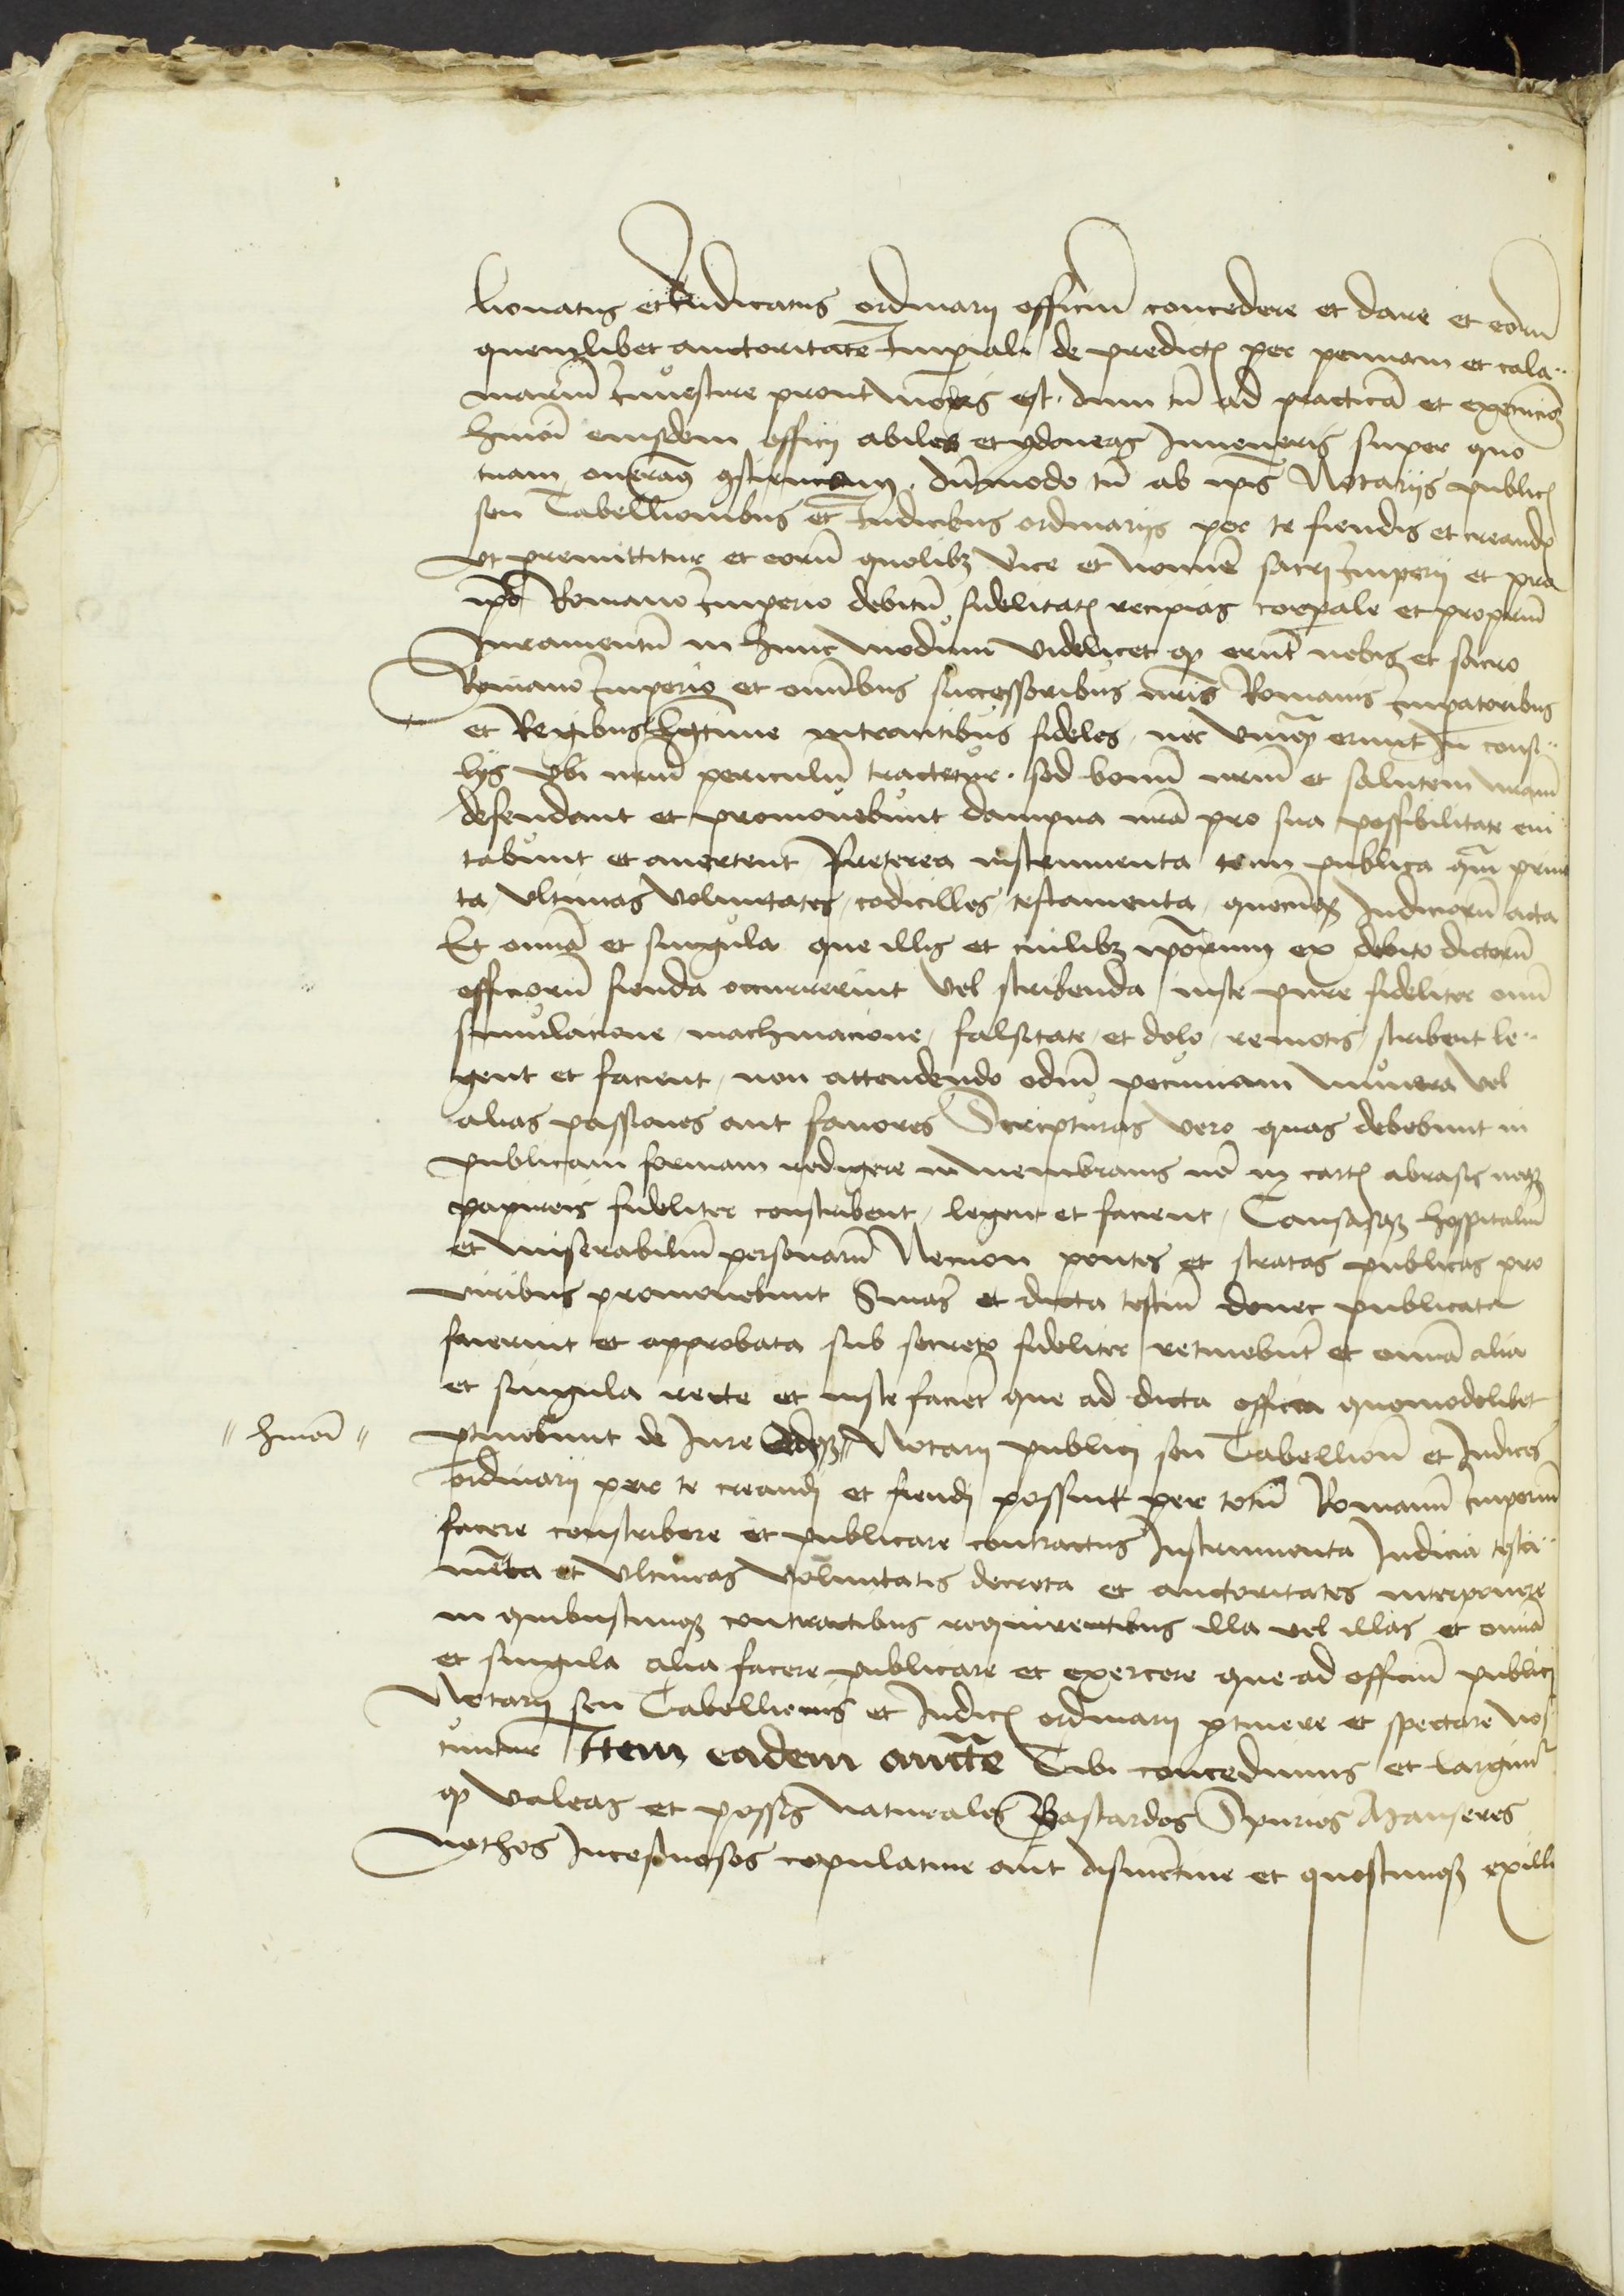 lionatus et Iudicatus ordinarij officiũ concedere et dare et eorũ
quemlibet auctoritate Imp̱iali de predict̃ per pennam et cala¨
mariũ Inuestire prout moris est. dum tñ ad practicã et execuciõ
hmõi eiusdem officij abiles et ydoneas Inueneris super quo
tuam oneramꝰ ɔscienciam. dũmodo tñ ab ip̃is Notarijs public̃
seu Tabellionibus et Iudicibus ordinarijs per te fiendis et creand̃
vt premittitur et eorũ quolibꝫ vice et nomine sacri Imperij et pro
ip̃o Romano Imperio debitũ fidelitat̃ recipias corp̱ale et propriũ
Iuramentũ in hunc modum videlicet ꝙ erũt nobis et sacro
Romano Imperio et om̃ibus successoribus nr̃is Romanis Imp̱atoribus
et Regibus legitime intrantibus fideles. nec vnqᷓ erunt In consi¨
lijs vbi nr̃m periculũ tractetur. sed bonũ nr̃m et salutem nr̃am
defendant et promouebunt dampna nr̃a pro sua possibilitate eui¨
tabunt et auertent Preterea instrumenta tam publica qᷓ priua
ta, vltimas voluntates, codicilles, testamenta, quecũqꝫ Iudiciorũ acta
Et om̃ia et singula que illis et cuilibꝫ ip̃orum ex debito dictorũ
officiorũ fienda occurrerint vel scribenda iuste pure fideliter om̃i
simulacione, machinacione, falsitate, et dolo, remotis scribent le¨
gent et facient, non attendendo odiũ pecuniam munera vel
alias passiones aut fauores Scripturas vero quas debebunt in
publicam formam redigere in membranis nõ in cart̃ abrasis neqꝫ
papireis fideliter conscribent, legent et facient, Causasqꝫ hospitaliũ
et miserabiliũ personarũ Necnon pontes et stratas publicas pro
viribus promouebunt Snĩas et dicta testiũ donec publicata
fuerint et approbata sub secreto fideliter retinebũt et om̃ia alia
et singula recte et iuste faciẽt que ad dicta officia quomodolibet
// hmõi // ꝑtinebunt de Iure Notarij publici seu Tabellioñ et Iudices
ordinarij per te creandj et fiendj possint per totũ Romanũ Imperiũ
facere conscribere et publicare contractus Instrumenta Iudicia testa¨
mẽta et vltimas voluntatis decreta et auctoritates interponere
in quibuscumqꝫ contractibus requirentibus illa vel illas et om̃ia
et singula alia facere publicare et exercere que ad officiũ publici
Notarij seu Tabellionis et Iudic̃ ordinarij ꝑtinere et spectare nos¨
cuntur Item eadem auct̃te Tibi concedimus et largimᷣ
ꝙ valeas et possis naturales Bastardos Spurios Manseres
nothos Incestuosos copulatiue aut disiũctiue et quoscumqꝫ exilli